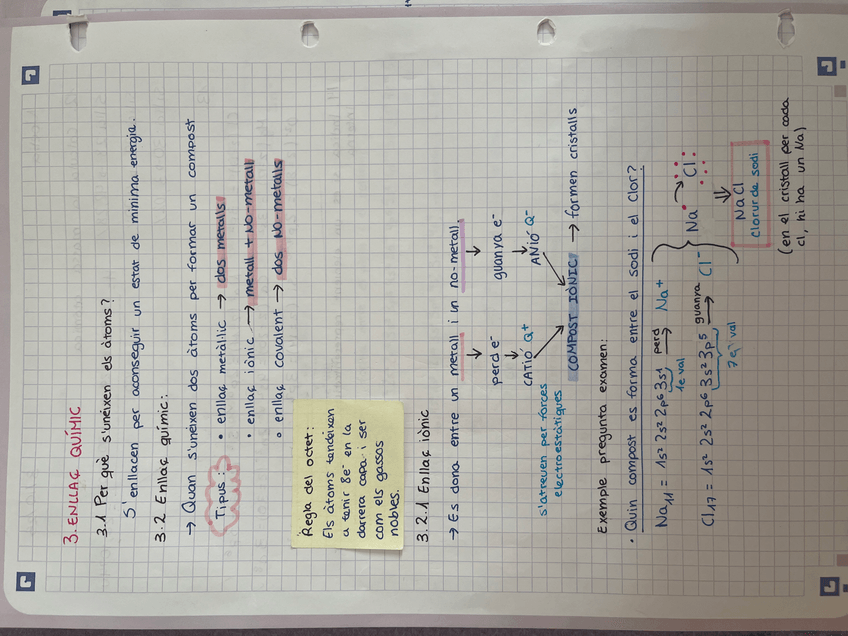 3. ENLLAÇ QUÍMIC
3.1 Per què s'uneixen els àtoms?
S'enllacen per aconseguir un estat de mínima energia.
3.2 Enllaç químic:
→ Quan s'uneixen dos àtoms per formar un compost
Tipus: • enllaç metàl·lic → dos metalls
• enllaç iònic → metall + no-metall
• enllaç covalent → dos no-metalls
Regla del octet:
Els àtoms tendeixen
a tenir 8e⁻ en la
darrera capa i ser
com els gassos
nobles.
3.2.1 Enllaç iònic
→ Es dona entre un metall i un no-metall.
perd e⁻ guanya e⁻
CATIÓ Q+ ANIÓ Q⁻
s'atreuen per forces
electroestàtiques
COMPOST IÒNIC → formen cristalls
Exemple pregunta examen:
• Quin compost es forma entre el sodi i el clor?
Na₁₁ = 1s² 2s² 2p⁶ 3s¹ perd → Na⁺
1e val
Cl₁₇ = 1s² 2s² 2p⁶ 3s² 3p⁵ guanya → Cl⁻
7e⁻ val
Na Cl
NaCl
clorur de sodi
(en el cristall per cada
cl, hi ha un Na)